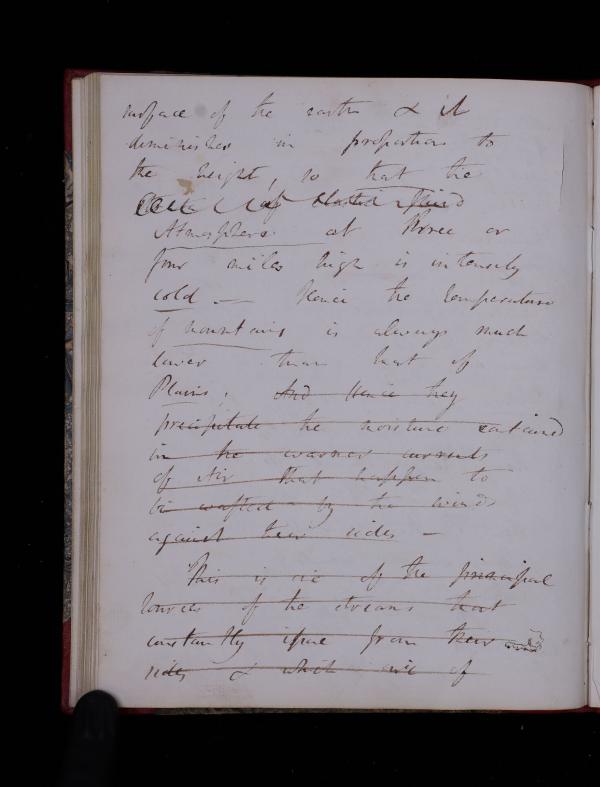 surface of the earth & it
diminishes in proportion to
the height, so that the
of elastic fluid
Atmosphere at three or
four miles high is intensely
cold. — Hence the temperature
of mountains is always much
lower than that of
Plains; And Hence they
precipitate the moisture contained
in the warmer currents
of Air that happen to
be wafted by the winds
against their sides —
This is one of the principal
sources of the streams that
constantly issue from their
sides & which are of